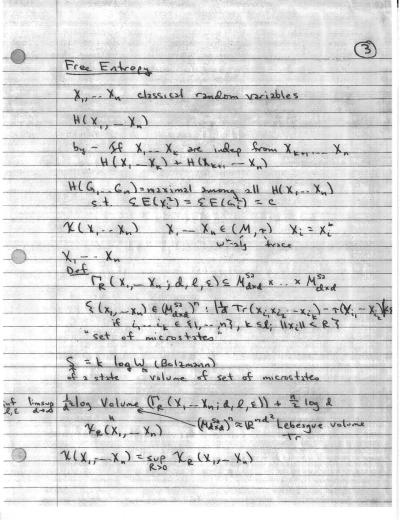 3
Free Entropy
X₁, ... Xₙ classical random variables
H(X₁, ... Xₙ)
by - If X₁ ... Xₖ are indep from Xₖ₊₁, ... Xₙ
H(X₁ ... Xₖ) + H(Xₖ₊₁ ... Xₙ)
H(G₁ ... Gₙ) = maximal among all H(X₁ ... Xₙ)
s.t. ΣE(Xᵢ²) = ΣE(Gᵢ²) = c
χ(X₁, ... Xₙ) X₁ ... Xₙ ∈ (M, τ) Xᵢ = Xᵢ*
W*-alg trace
X₁ ... Xₙ
Def
Γ_R(X₁ ... Xₙ; d, l, ε) ⊆ M^{sa}_{d×d} × ... × M^{sa}_{d×d}
{(x₁, ... xₙ) ∈ (M^{sa}_{d×d})ⁿ : |1/d Tr(x_{i₁} x_{i₂} ... x_{iₖ}) - τ(X_{i₁} ... X_{iₖ})| < ε
if i₁ ... iₖ ∈ {1, ... n}, k ≤ l, ||xᵢ|| < R}
"set of microstates"
S = k log W (Bolzmann)
of a state volume of set of microstates
inf l,ε limsup d→∞ 1/d² log Volume (Γ_R(X₁ ... Xₙ; d, l, ε)) + n/2 log d
χ_R(X₁, ... Xₙ) (M^{sa}_{d×d})ⁿ ≈ ℝ^{nd²} Lebesgue volume
Tr
χ(X₁, ... Xₙ) = sup R>0 χ_R(X₁, ... Xₙ)